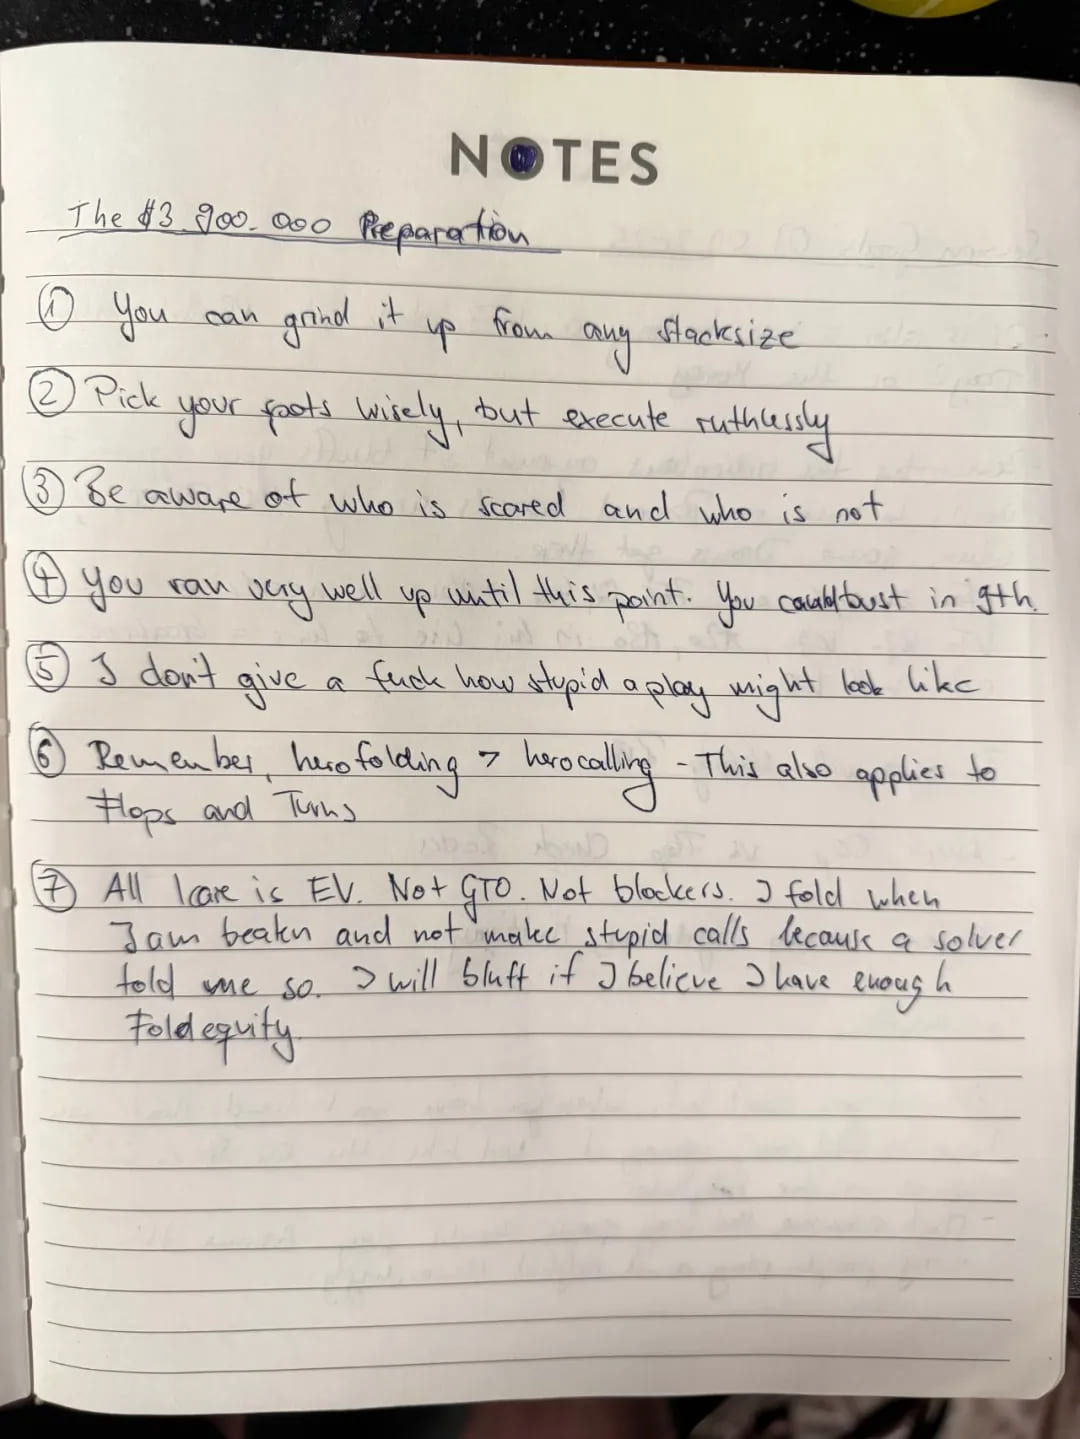 NOTES
The $3.900.000 Preparation
① You can grind it up from any stacksize
② Pick your spots wisely, but execute ruthlessly
③ Be aware of who is scared and who is not
④ You ran very well up until this point. You could bust in 9th.
⑤ I don't give a fuck how stupid a play might look like
⑥ Remember, herofolding > herocalling - This also applies to
Flops and Turns
⑦ All I care is EV. Not GTO. Not blockers. I fold when
I am beaten and not make stupid calls because a solver
told me so. I will bluff if I believe I have enough
Foldequity.